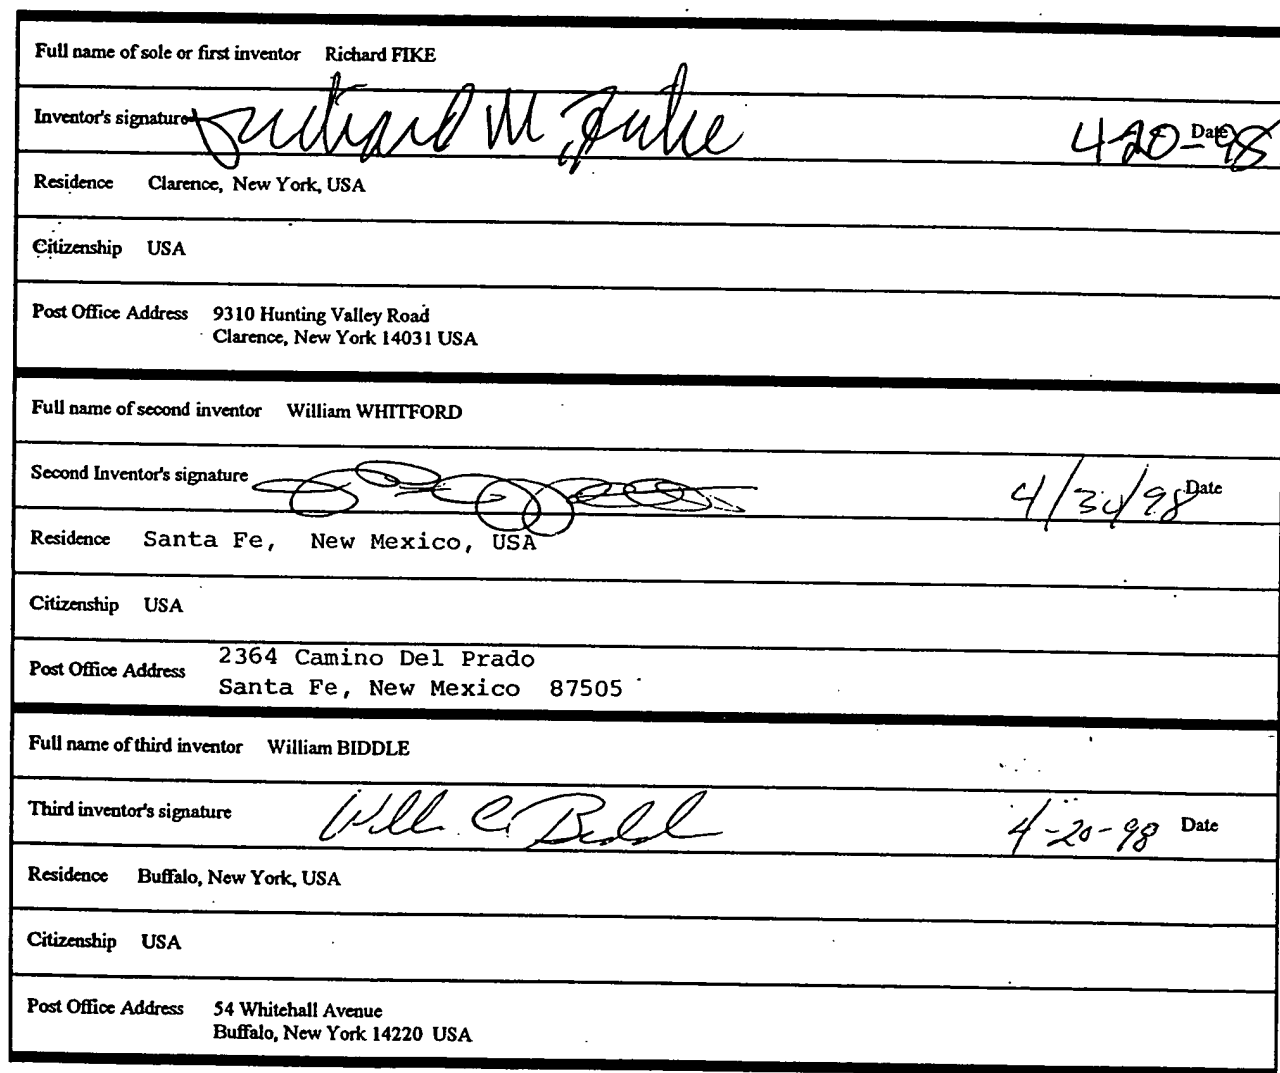 Full name of sole or first inventor Richard FIKE
Inventor's signature Richard M. Fike 4-20-98 Date
Residence Clarence, New York, USA
Citizenship USA
Post Office Address 9310 Hunting Valley Road
Clarence, New York 14031 USA
Full name of second inventor William WHITFORD
Second Inventor's signature 4/30/98 Date
Residence Santa Fe, New Mexico, USA
Citizenship USA
Post Office Address 2364 Camino Del Prado
Santa Fe, New Mexico 87505
Full name of third inventor William BIDDLE
Third inventor's signature Will C. Biddl 4-20-98 Date
Residence Buffalo, New York, USA
Citizenship USA
Post Office Address 54 Whitehall Avenue
Buffalo, New York 14220 USA